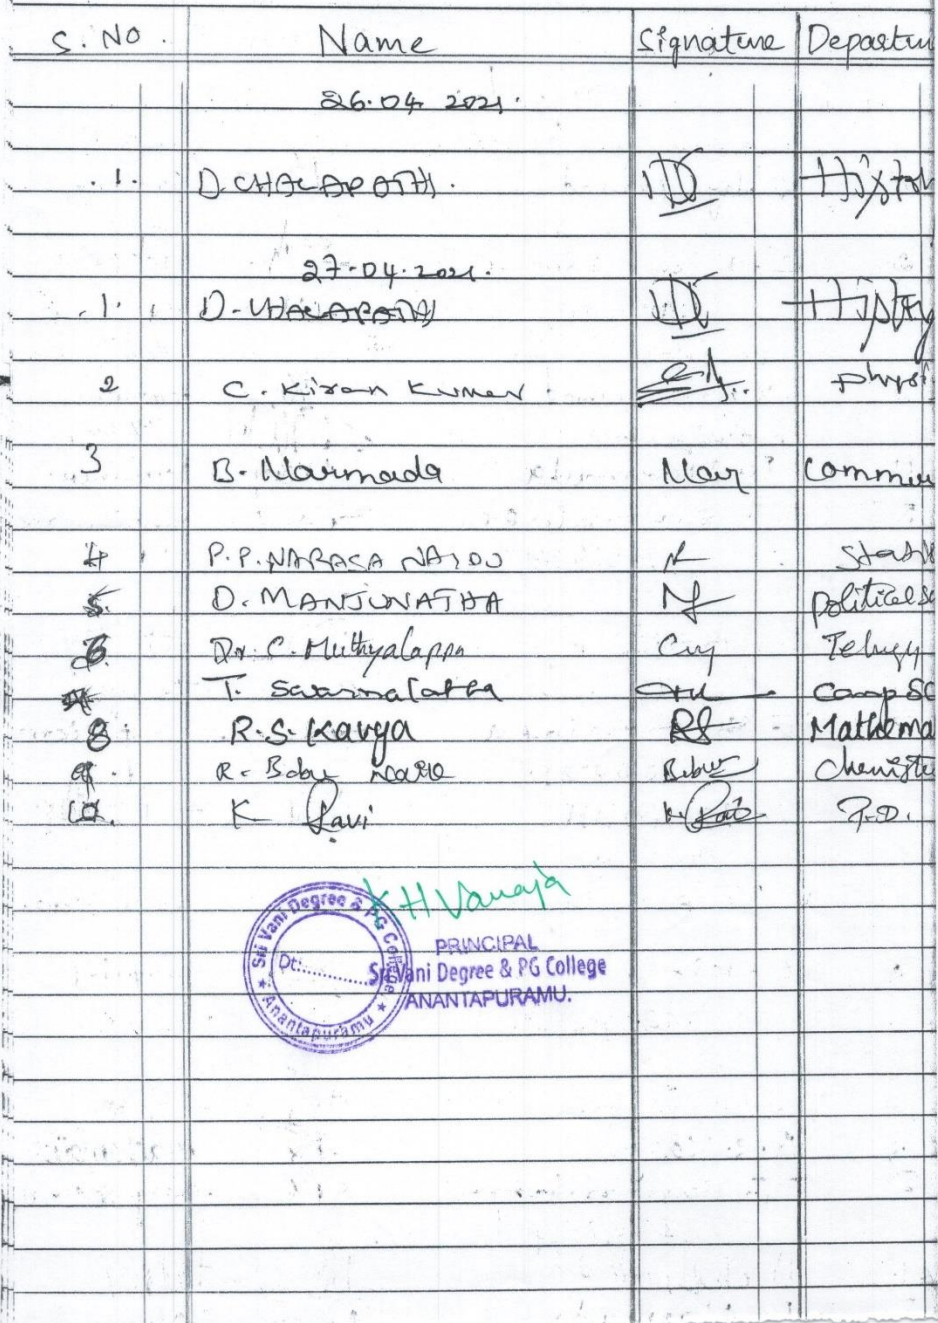 S. No. Name Signature Departm
26.04 2021.
1. D. CHALAPATHI. History
27-04-2021.
1. D. CHALAPATHI History
2 C. Kiran Kumar physi
3 B. Narmada Nar Commer
4 P.P. NARASA NAIDU Stati
5. D. MANJUNATHA political Sc
6 Dr. C. Muthyalappa Telugu
7 T. Swarnalatha Comp SC
8 R.S. Kavya RS Mathema
9. R. Babu Babu Chemist
10. K Ravi K. Ravi P.D.
K H Vanaja
PRINCIPAL
Sri Vani Degree & PG College
ANANTAPURAMU.
Sri Vani Degree & PG College
Dt:............
★ Anantapuramu ★